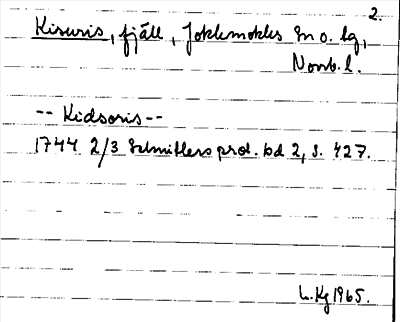 2.
Kisuris, fjäll, Jokkmokks sn o. lg,
Norrb. l.
-- Kidsoris --
1744 2/3 Schnitlers prot. bd 2, s. 427.
L. Kg 1965.